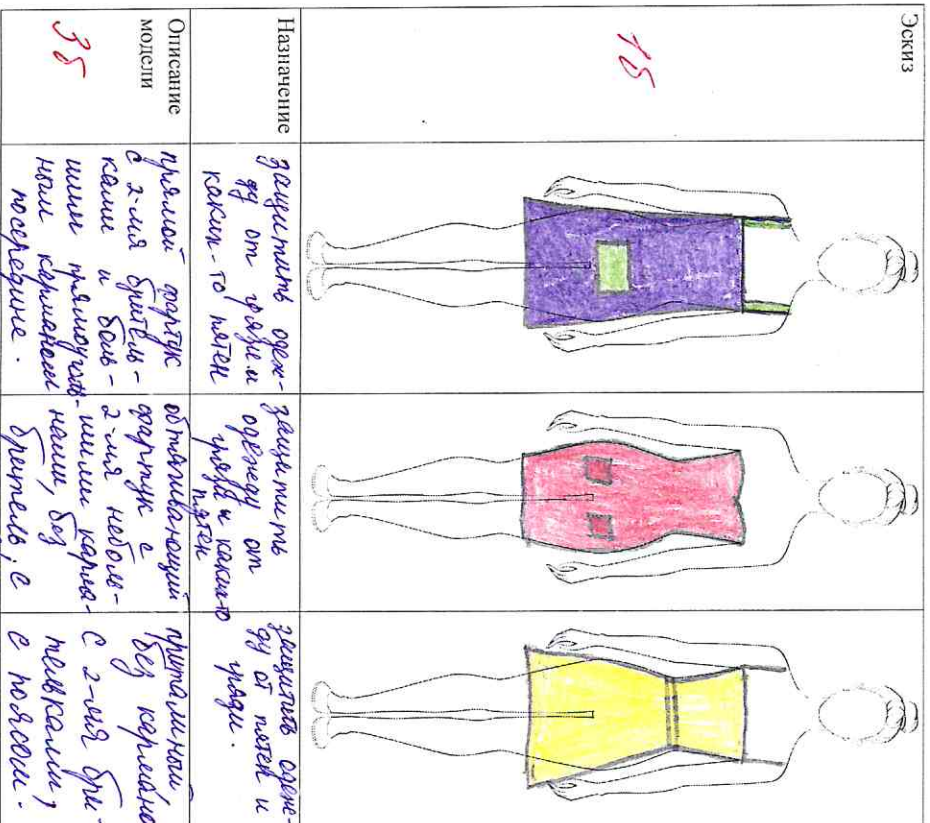 Эскиз
1б
Назначение
защитить одеж-
ду от грязи и
каких-то пятен
защитить
одежду от
грязи и каких-то
пятен
защитить одеж-
ду от пятен и
грязи.
Описание
модели
3б
прямой фартук
с 2-мя бритель-
ками и боль-
шим прямоуголь-
ным карманом
посередине.
обтягивающий
фартук с
2-мя неболь-
шими карма-
нами, без
брителв, с
приталиный,
без кармано
с 2-мя бри-
телвками,
с поясом.